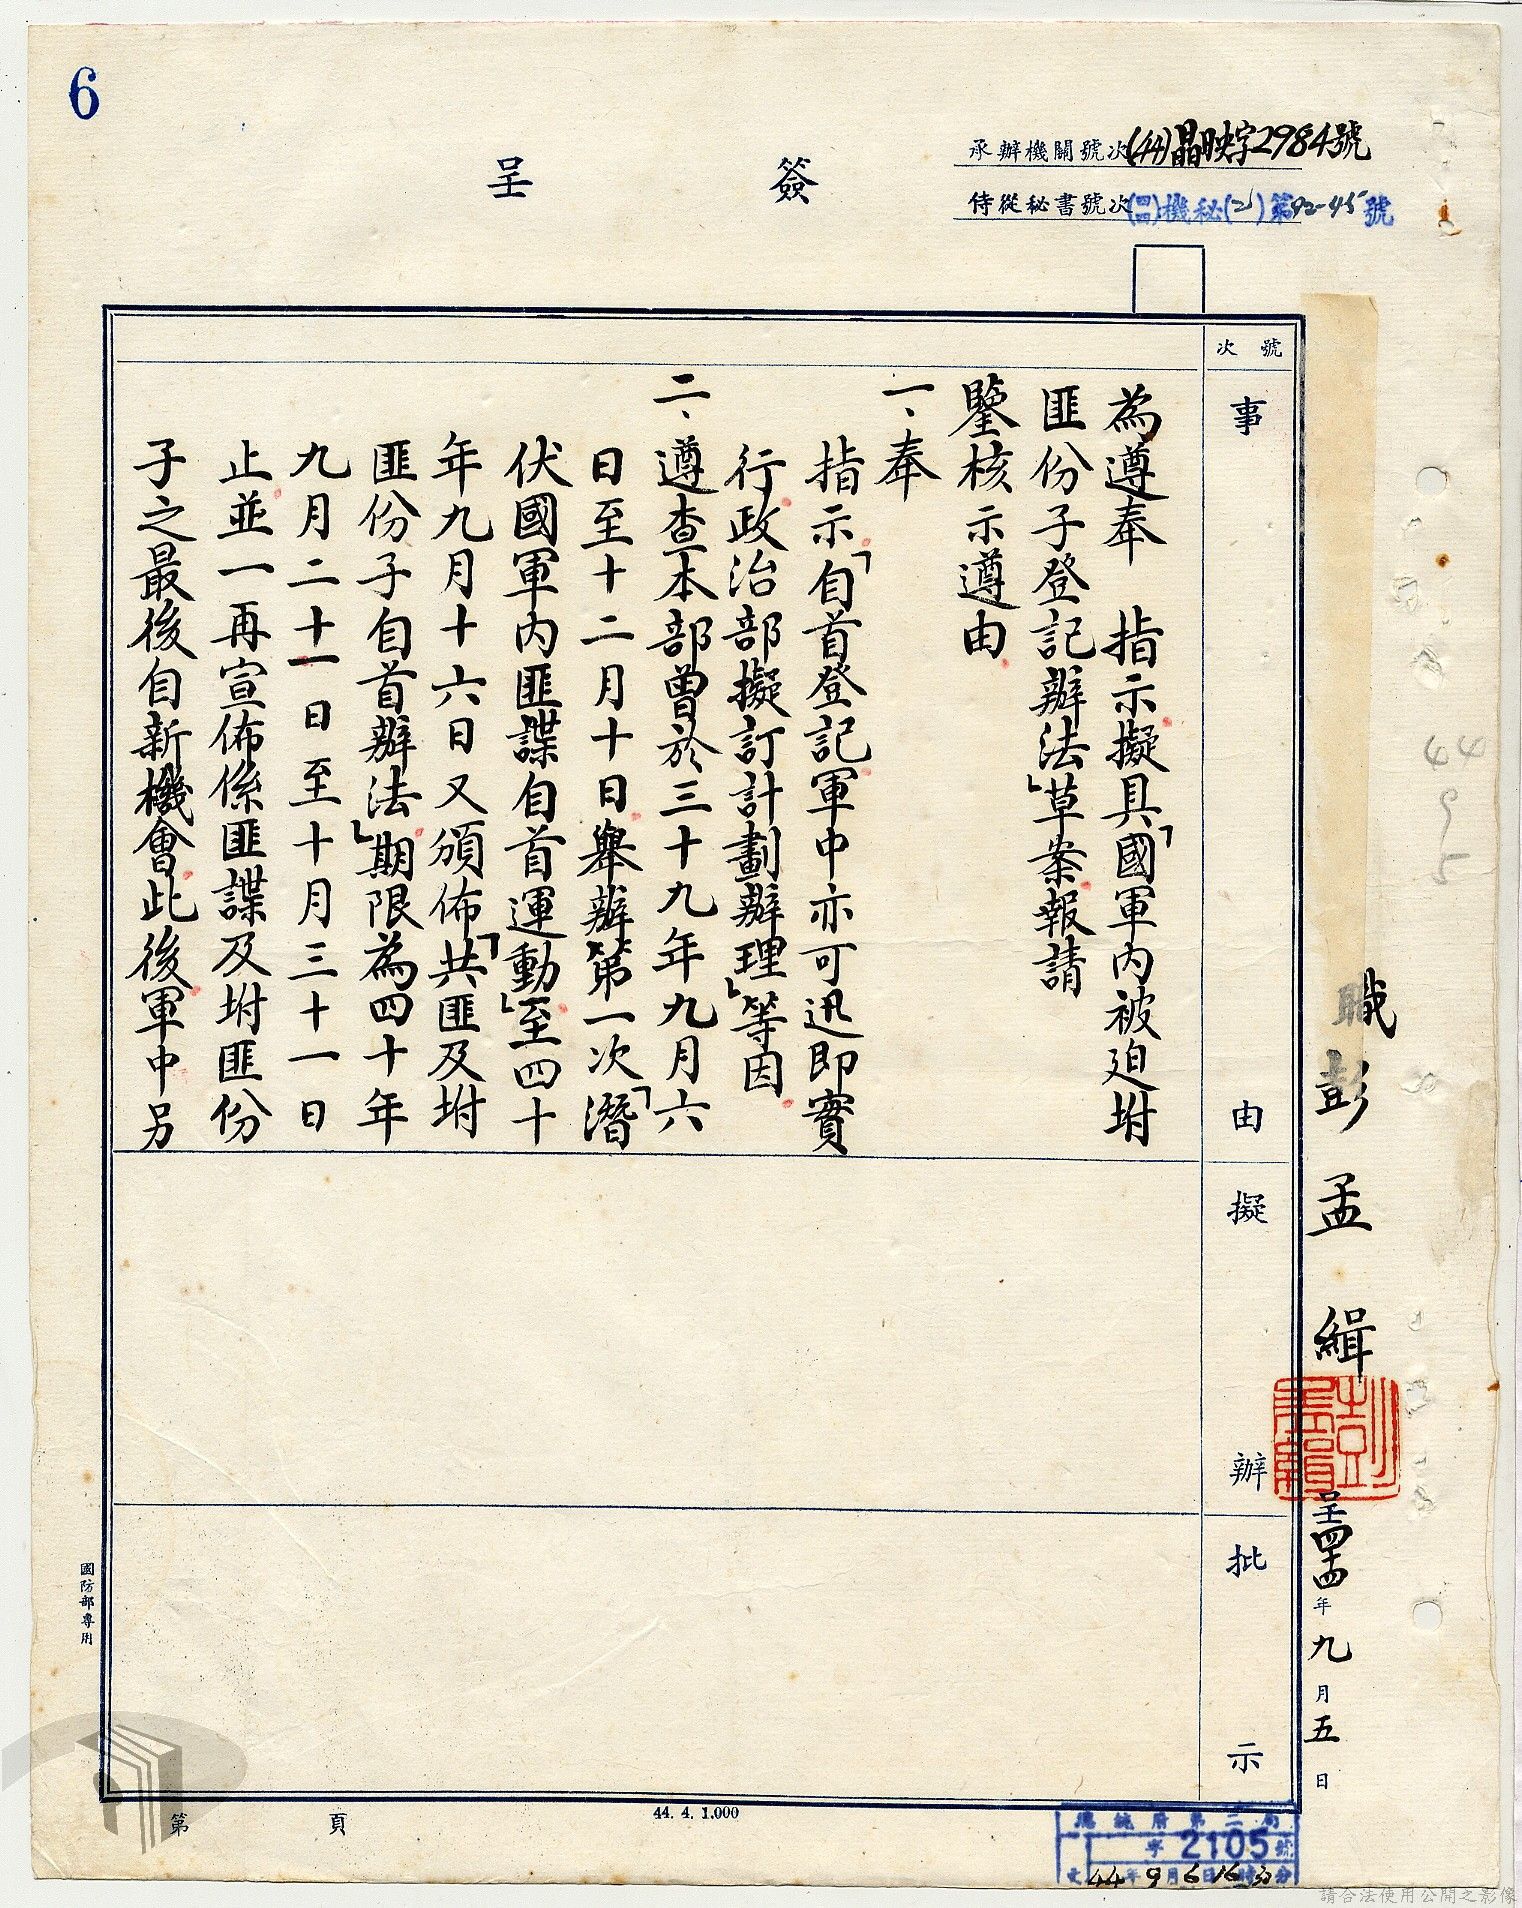 6
簽呈
承辦機關號次(44)晶映字2984號
侍從秘書號次(四四)機秘(乙)第92-45號
號次
事由
擬辦
批示
為遵奉 指示擬具「國軍內被迫坿
匪份子登記辦法」草案報請
鑒核示遵由
一、奉
指示「自首登記軍中亦可迅即實
行政治部擬訂計劃辦理」等因
二、遵查本部曾於三十九年九月六
日至十二月十日舉辦第一次「潛
伏國軍內匪諜自首運動」至四十
年九月十六日又頒佈「共匪及坿
匪份子自首辦法」期限為四十年
九月二十一日至十月三十一日
止並一再宣佈係匪諜及坿匪份
子之最後自新機會此後軍中另
職彭孟緝
呈四十四年九月五日
國防部專用
第 頁
44. 4. 1.000
總統府第二局
字2105號
文44年9月6日16時 分
請合法使用公開之影像